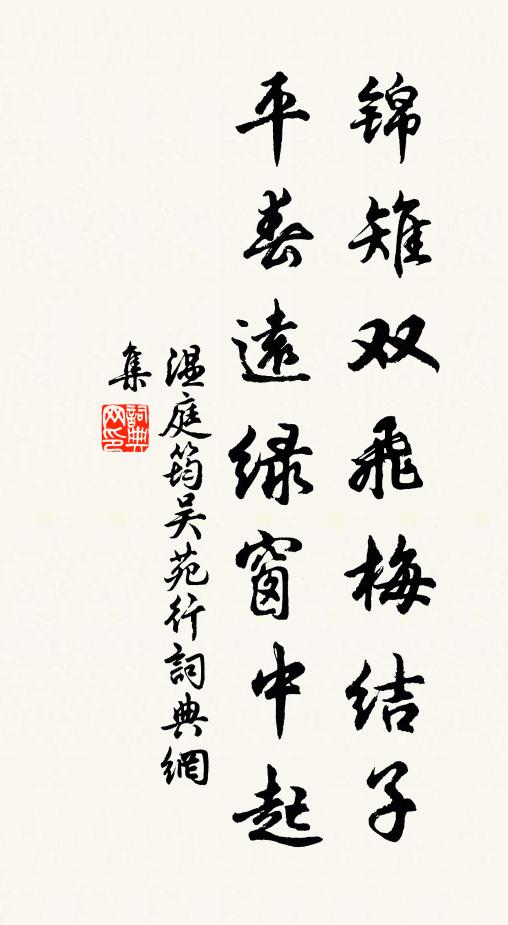 锦雉双飞梅结子
平春远绿窗中起
温庭筠吴苑行詞典網
集
詞典
网印